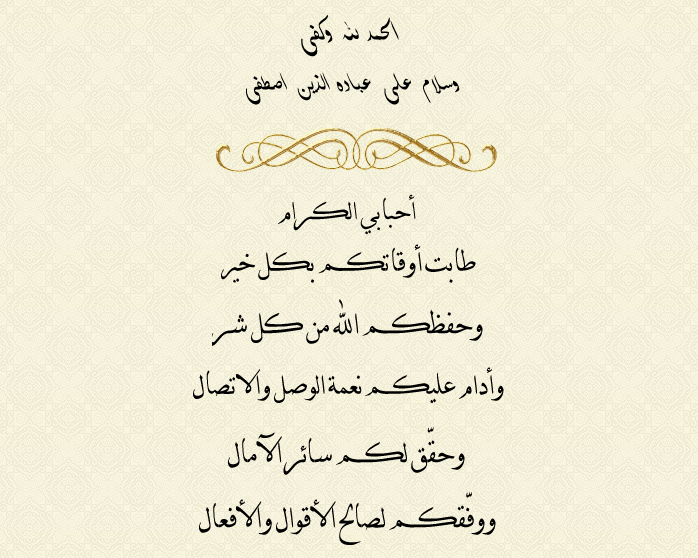 الحمد لله وكفى
وسلام على عباده الذين اصطفى
أحبابي الكرام
طابت أوقاتكم بكل خير
وحفظكم الله من كل شر
وأدام عليكم نعمة الوصل والاتصال
وحقّق لكم سائر الآمال
ووفّقكم لصالح الأقوال والأفعال